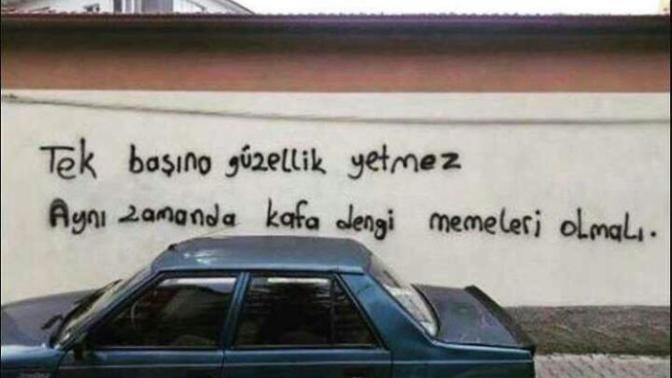 Tek başına güzellik yetmez
Aynı zamanda kafa dengi memeleri olmalı.